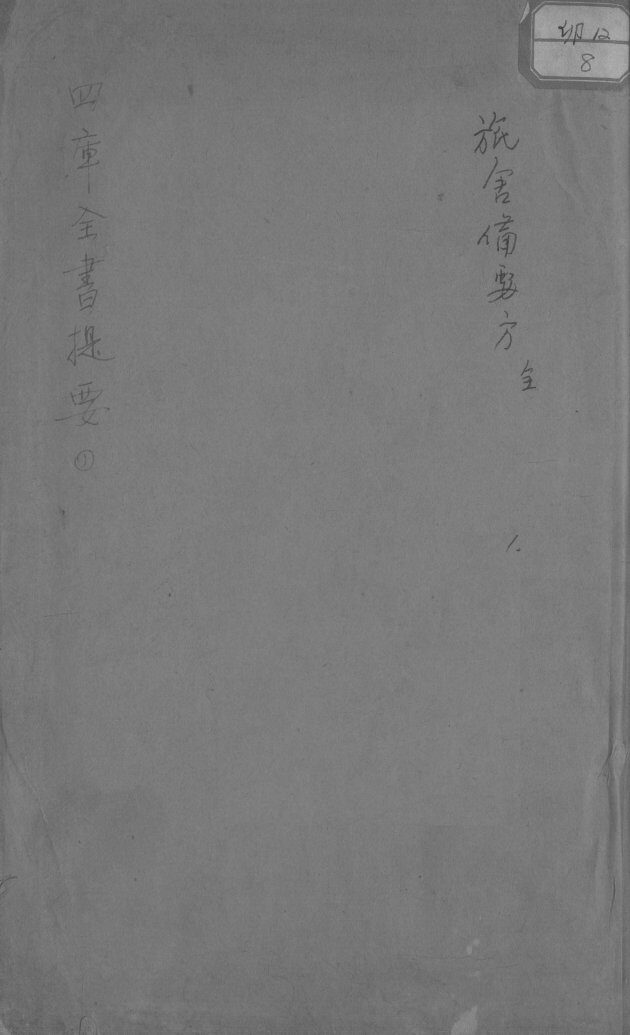 卯12
8
旅舍備要方
全
1.
四庫全書提要①